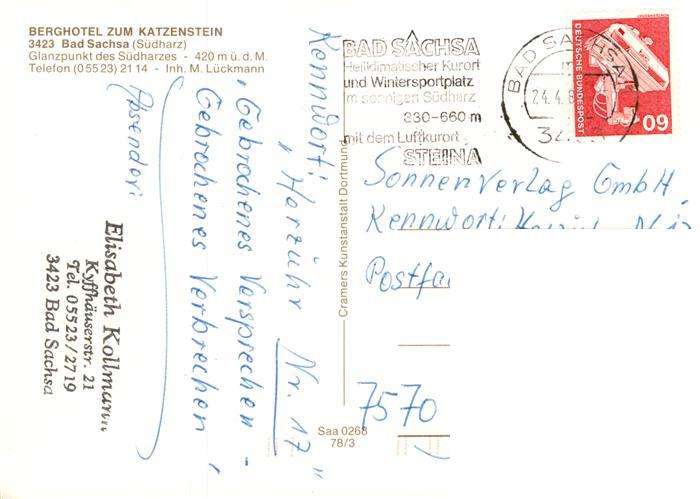 BERGHOTEL ZUM KATZENSTEIN
3423 Bad Sachsa (Südharz)
Glanzpunkt des Südharzes - 420 m ü. d. M.
Telefon (05523) 21 14 - Inh. M. Lückmann
Kennwort:
"Harzuhr Nr. 17"
"Gebrochenes Versprechen -
Gebrochenes Verbrechen"
Absender:
Elisabeth Kollmann
Kyffhäuserstr. 21
Tel. 05523/2719
3423 Bad Sachsa
Cramers Kunstanstalt Dortmund
Saa 0268
78/3
BAD SACHSA
Heilklimatischer Kurort
und Wintersportplatz
im sonnigen Südharz
330-660 m
mit dem Luftkurort
STEINA
BAD SACHSA
24.4.8
DEUTSCHE BUNDESPOST
60
Sonnenverlag GmbH,
Kennwort:
Postfa
7570